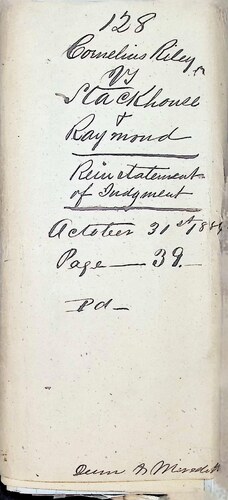 128
Cornelius Riley
vs
Stackhouse
&
Raymond
Reinstatement
of Judgment
October 31st 188
Page — 39.
Pd —
Meredith